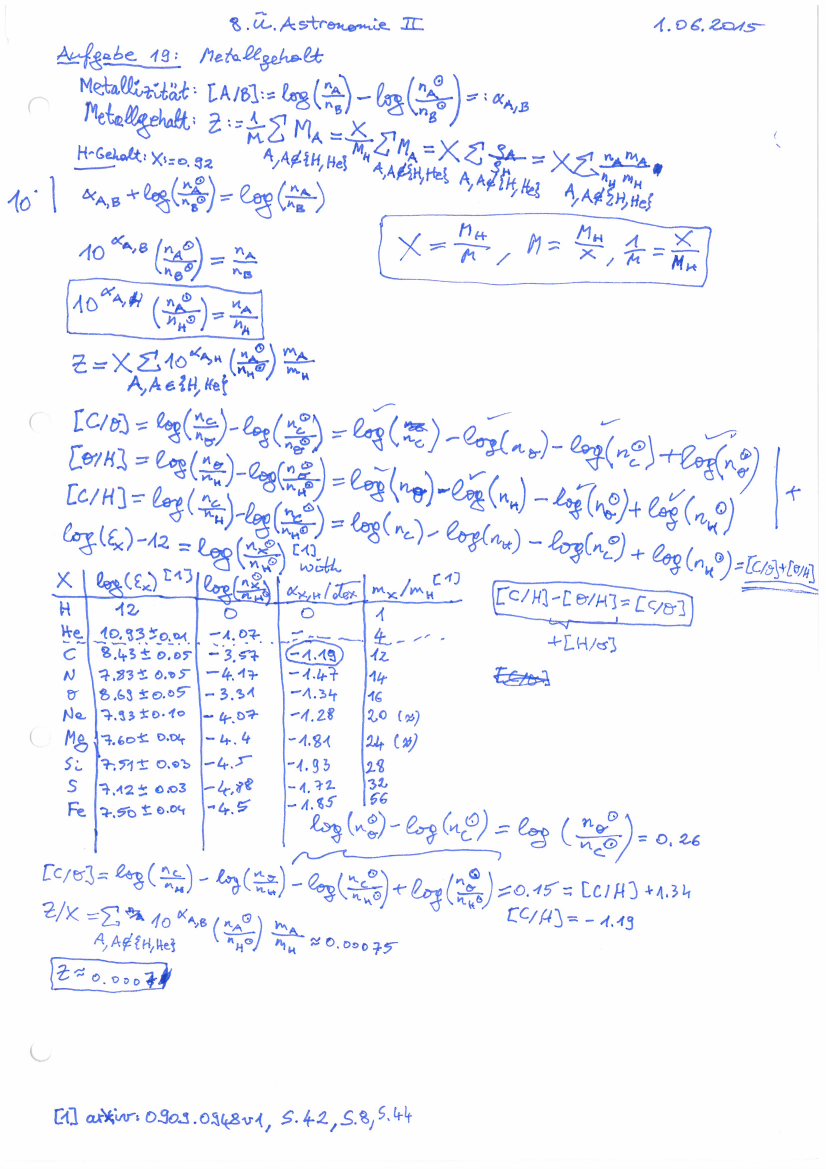 8. Ü. Astronomie II 1.06.2015
Aufgabe 19: Metallgehalt
Metallizität: [A/B] := log(n_A/n_B) − log(n_A^⊙/n_B^⊙) =: α_{A,B}
Metallgehalt: Z := 1/M ∑_{A, A∉{H,He}} M_A = X/M_H ∑_{A, A∉{H,He}} M_A = X ∑_{A, A∉{H,He}} ρ_A/ρ_H = X ∑_{A, A∉{H,He}} n_A m_A / n_H m_H
H-Gehalt: X := 0.92
10^· | α_{A,B} + log(n_A^⊙/n_B^⊙) = log(n_A/n_B)
X = M_H/M, M = M_H/X, 1/M = X/M_H
10^{α_{A,B}} (n_A^⊙/n_B^⊙) = n_A/n_B
10^{α_{A,H}} (n_A^⊙/n_H^⊙) = n_A/n_H
Z = X ∑_{A, A∈{H,He}} 10^{α_{A,H}} (n_A^⊙/n_H^⊙) m_A/m_H
[C/O] = log(n_C/n_O) − log(n_C^⊙/n_O^⊙) = log(n_C) − log(n_O) − log(n_C^⊙) + log(n_O^⊙)
[O/H] = log(n_O/n_H) − log(n_O^⊙/n_H^⊙) = log(n_O) − log(n_H) − log(n_O^⊙) + log(n_H^⊙) | +
[C/H] = log(n_C/n_H) − log(n_C^⊙/n_H^⊙) = log(n_C) − log(n_H) − log(n_C^⊙) + log(n_H^⊙) = [C/O]+[O/H]
log(ε_X) − 12 = log(n_X^⊙/n_H^⊙) [1] with
X | log(ε_X) [1] | log(n_X^⊙/n_H^⊙) | α_{X,H}/dex | m_X/m_H [1]
H | 12 | 0 | 0 | 1
He | 10.93±0.01 | −1.07 | – | 4
C | 8.43±0.05 | −3.57 | −1.19 | 12
N | 7.83±0.05 | −4.17 | −1.47 | 14
O | 8.69±0.05 | −3.31 | −1.34 | 16
Ne | 7.93±0.10 | −4.07 | −1.28 | 20 (≈)
Mg | 7.60±0.04 | −4.4 | −1.81 | 24 (≈)
Si | 7.51±0.03 | −4.5 | −1.93 | 28
S | 7.12±0.03 | −4.88 | −1.72 | 32
Fe | 7.50±0.04 | −4.5 | −1.85 | 56
[C/H]−[O/H] = [C/O]
+[H/O]
[C/O]
log(n_O^⊙) − log(n_C^⊙) = log(n_O^⊙/n_C^⊙) = 0.26
[C/O] = log(n_C/n_H) − log(n_O/n_H) − log(n_C^⊙/n_H^⊙) + log(n_O^⊙/n_H^⊙) = 0.15 = [C/H] + 1.34
[C/H] = −1.19
Z/X = ∑_{A, A∉{H,He}} 10^{α_{A,B}} (n_A^⊙/n_H^⊙) m_A/m_H ≈ 0.00075
Z ≈ 0.0007
[1] arxiv: 0909.0948v1, S.42, S.8, S.44